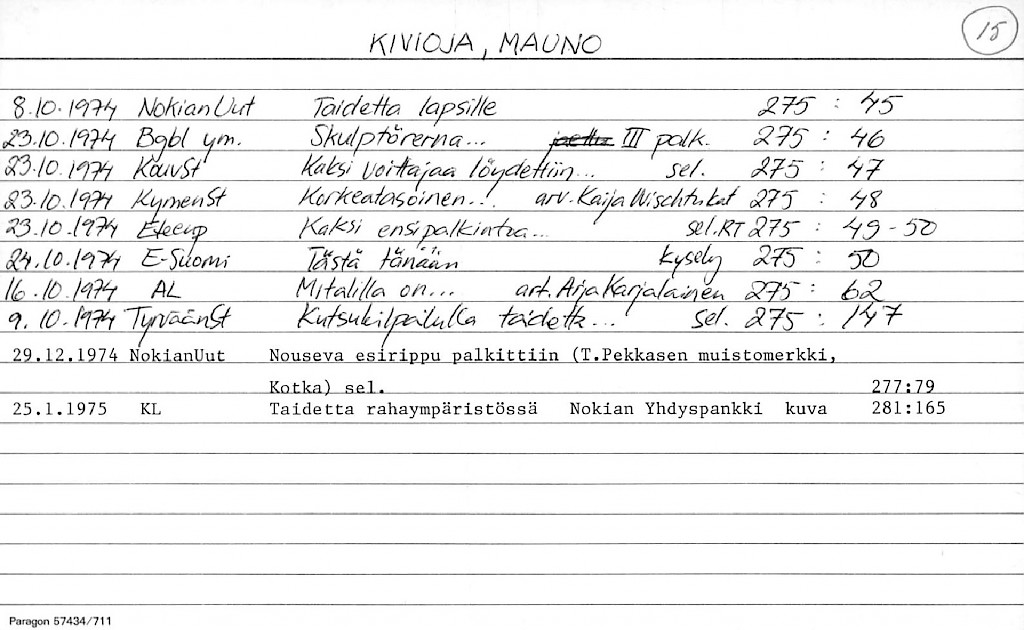 KIVIOJA, MAUNO 15
8.10.1974 NokianUut Taidetta lapsille 275 : 45
23.10.1974 Bgbl ym. Skulptörerna... III palk. 275 : 46
23.10.1974 KouvSt Kaksi voittajaa löydettiin... sel. 275 : 47
23.10.1974 KymenSt Korkeatasoinen... arv. Kaija Wischtukat 275 : 48
23.10.1974 Eteenp Kaksi ensipalkintoa... sel. RT 275 : 49-50
24.10.1974 E-Suomi Tästä tänään kysely 275 : 50
16.10.1974 AL Mitalilla on... art. Arja Karjalainen 275 : 62
9.10.1974 TyrväänSt Kutsukilpailulla taidetta... sel. 275 : 147
29.12.1974 NokianUut Nouseva esirippu palkittiin (T.Pekkasen muistomerkki,
Kotka) sel. 277:79
25.1.1975 KL Taidetta rahaympäristössä Nokian Yhdyspankki kuva 281:165
Paragon 57434/711